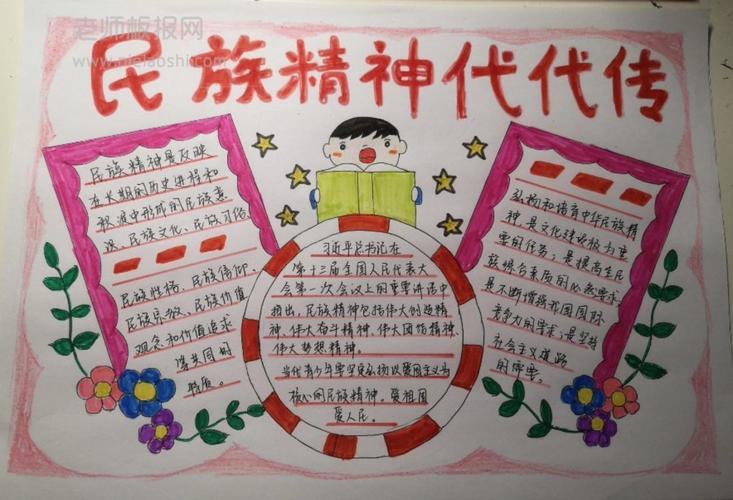 老师板报网
www.cnelaoshi.cn
民族精神代代传
民族精神是反映
在长期的历史进程和
积淀中形成的民族意
识、民族文化、民族习俗、
民族性格、民族信仰、
民族宗教、民族价值
观念和价值追求
等共同的
特质。
习近平总书记在
第十三届全国人民代表大
会第一次会议上的重要讲话中
指出，民族精神包括伟大创造精
神、伟大奋斗精神、伟大团结精神、
伟大梦想精神。
当代青少年要坚定弘扬以爱国主义为
核心的民族精神。爱祖国
爱人民。
弘扬和培育中华民族精
神，是文化建设极为重
要的任务；是提高全民
族综合素质的必然要求
是不断增强我国国际
竞争力的要求；是坚持
社会主义道路
的需要。